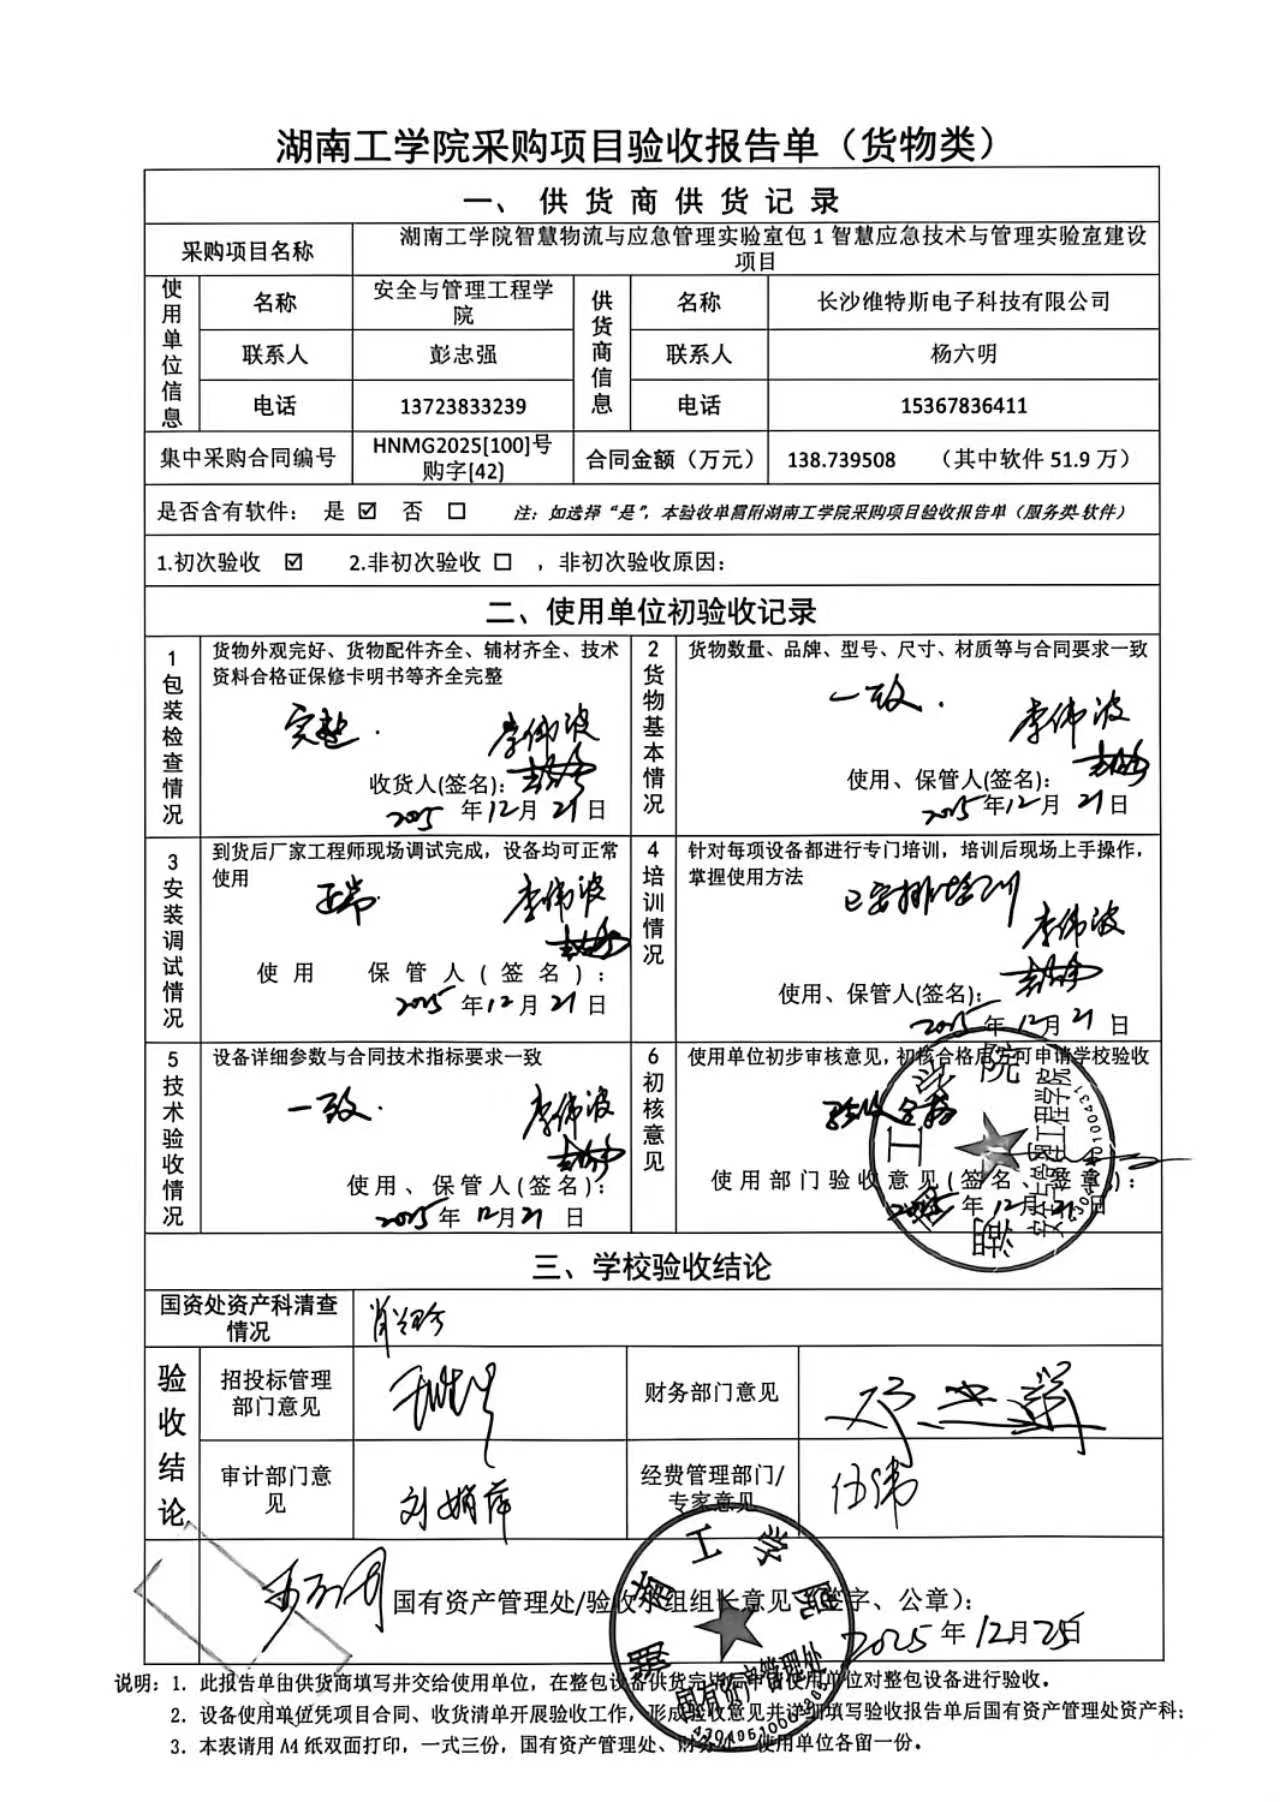 湖南工学院采购项目验收报告单（货物类）
一、供货商供货记录
采购项目名称
湖南工学院智慧物流与应急管理实验室包 1 智慧应急技术与管理实验室建设
项目
使用单位信息
名称
安全与管理工程学
院
供货商信息
名称
长沙维特斯电子科技有限公司
联系人
彭忠强
联系人
杨六明
电话
13723833239
电话
15367836411
集中采购合同编号
HNMG2025[100]号
购字[42]
合同金额（万元）
138.739508 （其中软件 51.9 万）
是否含有软件： 是 ☑ 否 □ 注：如选择“是”，本验收单需附湖南工学院采购项目验收报告单（服务类-软件）
1.初次验收 ☑ 2.非初次验收 □ ，非初次验收原因：
二、使用单位初验收记录
1包装检查情况
货物外观完好、货物配件齐全、辅材齐全、技术
资料合格证保修卡明书等齐全完整
完整. 李伟波
收货人(签名)：
2025 年 12 月 21 日
2货物基本情况
货物数量、品牌、型号、尺寸、材质等与合同要求一致
一致. 李伟波
使用、保管人(签名)：
2025 年 12 月 21 日
3安装调试情况
到货后厂家工程师现场调试完成，设备均可正常
使用
正常 李伟波
使用 保管人(签名)：
2025 年 12 月 21 日
4培训情况
针对每项设备都进行专门培训，培训后现场上手操作，
掌握使用方法
已安排培训 李伟波
使用、保管人(签名)：
2025 年 12 月 21 日
5技术验收情况
设备详细参数与合同技术指标要求一致
一致. 李伟波
使用、保管人(签名)：
2025 年 12 月 21 日
6初核意见
使用单位初步审核意见，初核合格后方可申请学校验收
验收合格
使用部门验收意见(签名、签章)：
2025 年 12 月 21 日
湖南工学院
安全与管理工程学院
三、学校验收结论
国资处资产科清查
情况
验收结论
招投标管理
部门意见
财务部门意见
审计部门意
见
刘娟萍
经费管理部门/
专家意见
伍涛
国有资产管理处/验收小组组长意见（签字、公章）：
2025 年 12 月 25 日
湖南工学院
国有资产管理处
说明：1. 此报告单由供货商填写并交给使用单位，在整包设备供货完毕后申请使用单位对整包设备进行验收。
2. 设备使用单位凭项目合同、收货清单开展验收工作，形成验收意见并详细填写验收报告单后国有资产管理处资产科；
3. 本表请用 A4 纸双面打印，一式三份，国有资产管理处、财务处、使用单位各留一份。